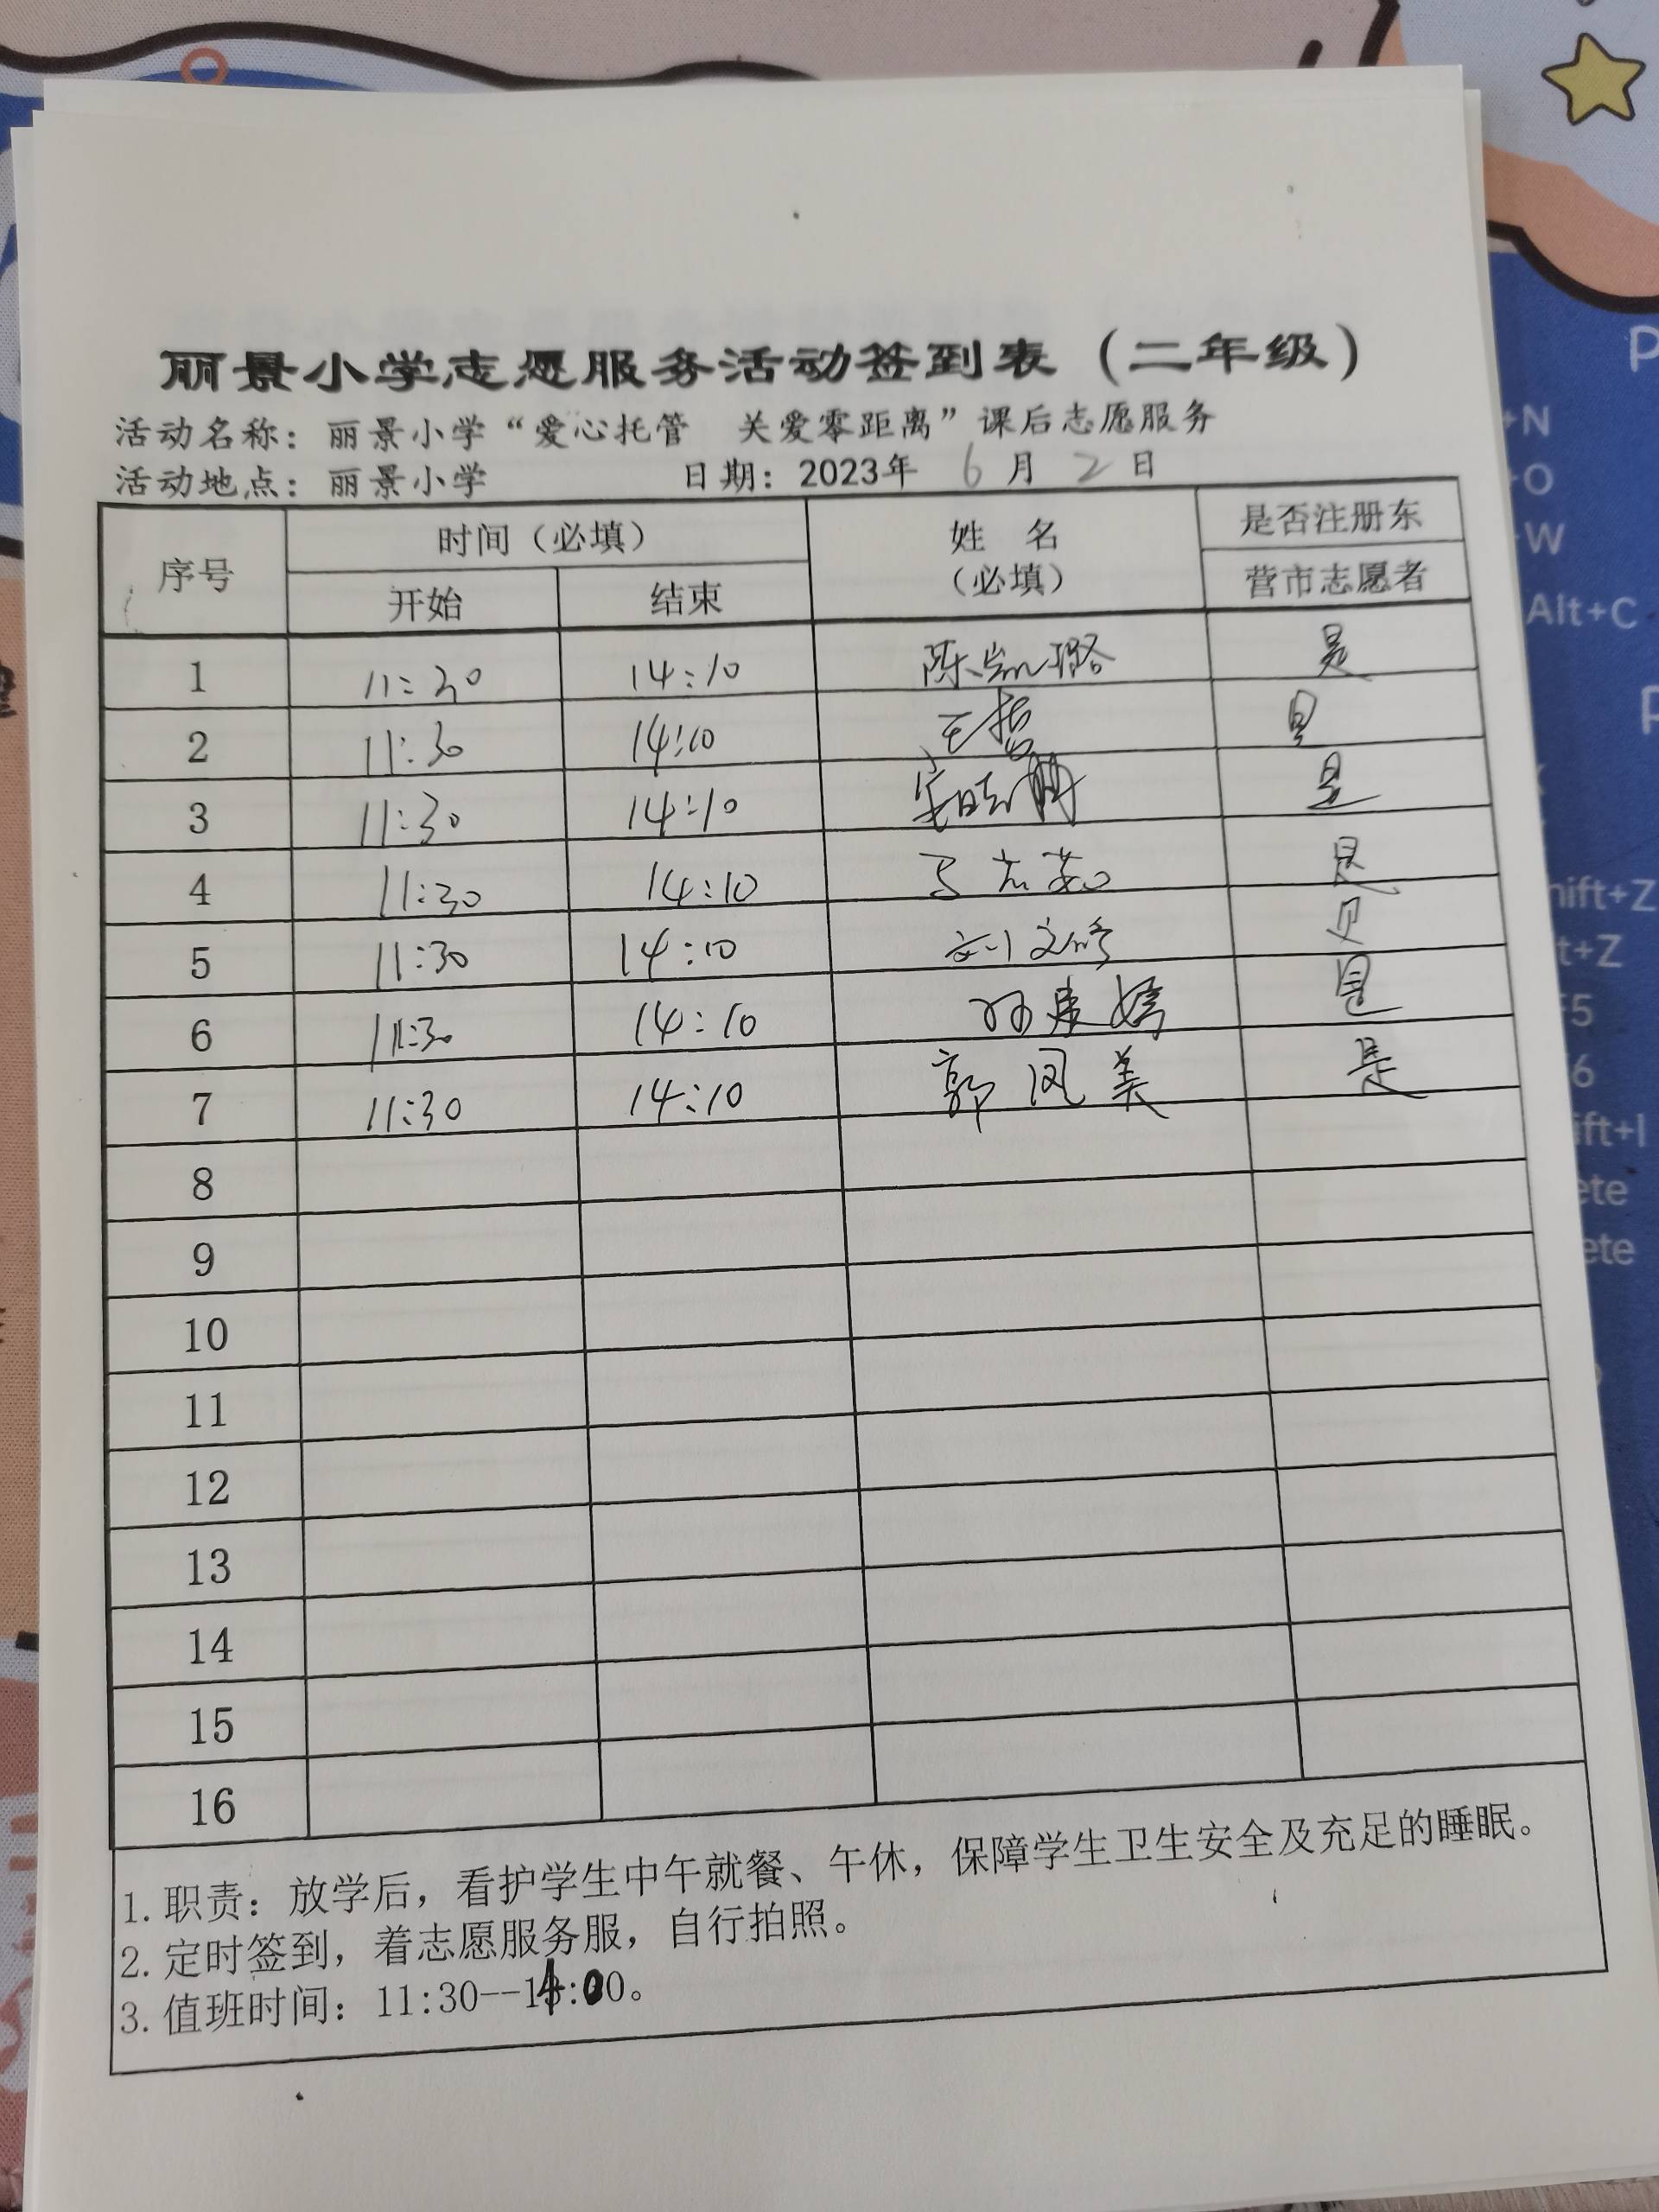 丽景小学志愿服务活动签到表（二年级）
活动名称：丽景小学“爱心托管 关爱零距离”课后志愿服务
活动地点：丽景小学 日期：2023年 6 月 2 日
序号 时间（必填） 姓 名（必填） 是否注册东营市志愿者
开始 结束
1 11:30 14:10 陈凯璐 是
2 11:30 14:10 是
3 11:30 14:10 是
4 11:30 14:10 是
5 11:30 14:10 是
6 11:30 14:10 是
7 11:30 14:10 郭凤美 是
8
9
10
11
12
13
14
15
16
1. 职责：放学后，看护学生中午就餐、午休，保障学生卫生安全及充足的睡眠。
2. 定时签到，着志愿服务服，自行拍照。
3. 值班时间：11:30--14:00。
P
+N
+O
+W
Alt+C
P
hift+Z
t+Z
F5
F6
ift+I
ete
ete